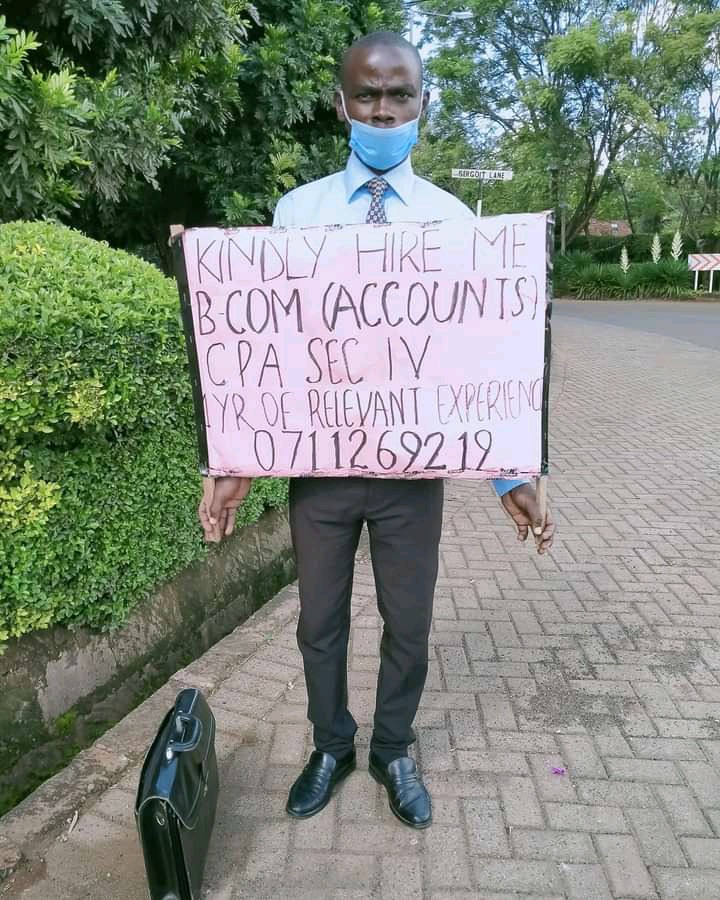 SERGOIT LANE
KINDLY HIRE ME
B-COM (ACCOUNTS)
CPA SEC IV
1YR OF RELEVANT EXPERIENC
0711269219